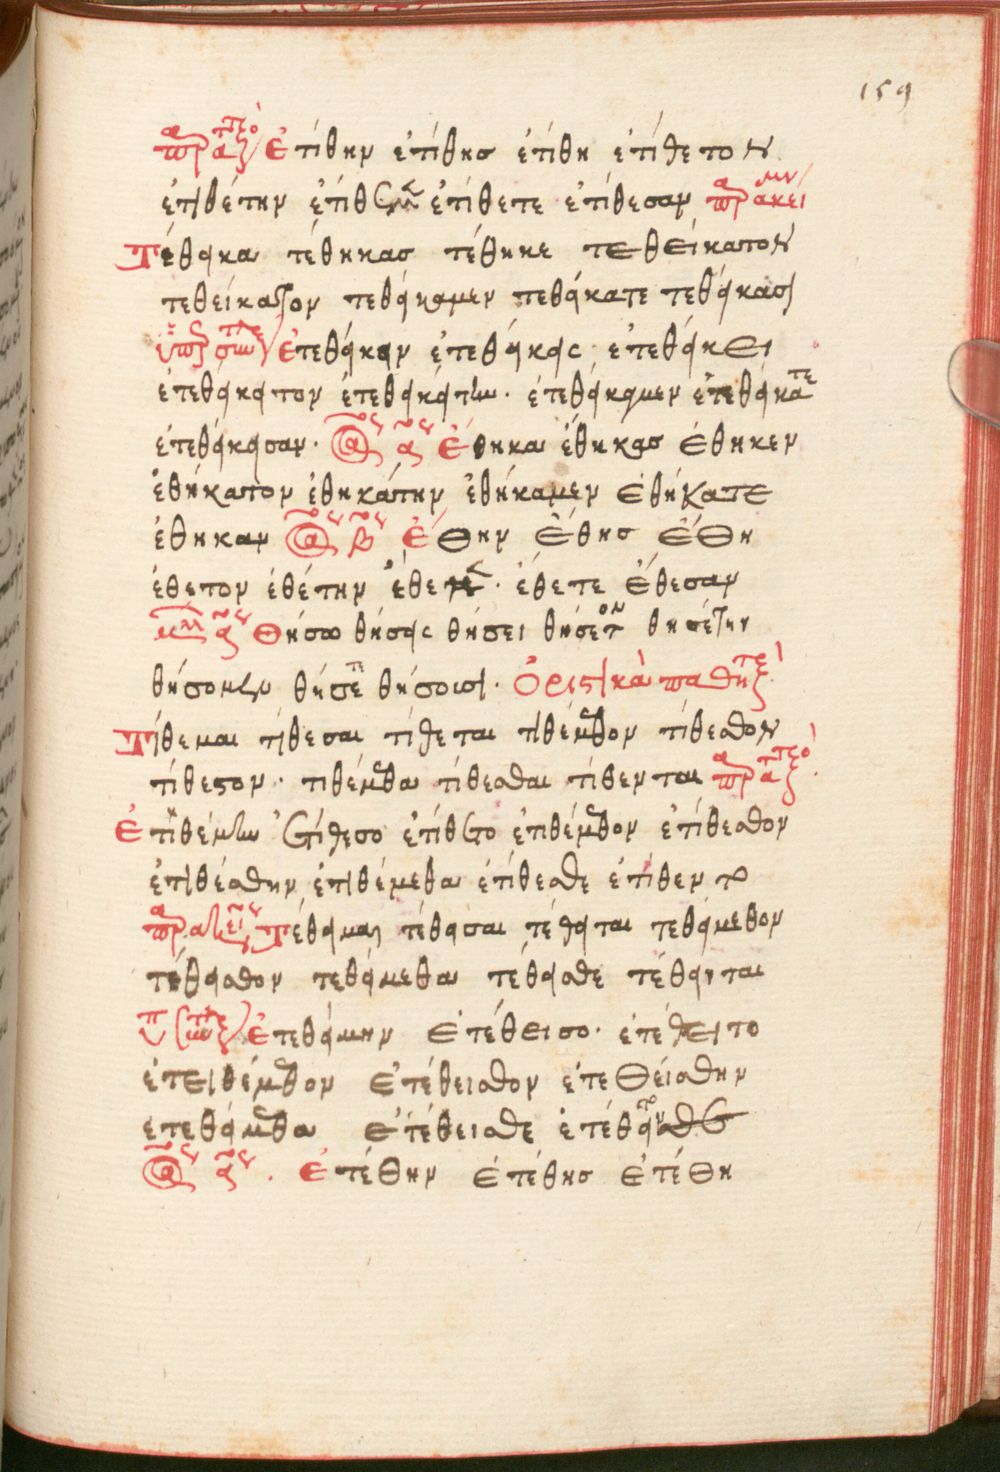 159
Ἐτίθην ἐτίθησ ἐτίθη ἐτίθετον
ἐτιθέτην ἐτίθεμεν ἐτίθετε ἐτίθεσαν
Τέθηκα τέθηκας τέθηκε τεθείκατον
τεθείκατον τεθήκαμεν τεθήκατε τεθήκασι
Ἐτεθήκην ἐτεθήκης ἐτεθήκει
ἐτεθήκητον ἐτεθηκήτην· ἐτεθήκημεν ἐτεθήκητε
ἐτεθήκησαν· Ἔθηκα ἔθηκας ἔθηκεν
ἐθήκατον ἐθηκάτην ἐθήκαμεν ἐθήκατε
ἔθηκαν β Ἔθην ἔθησ ἔθη
ἔθετον ἐθέτην ἔθεμεν· ἔθετε ἔθεσαν
Θήσω θήσεις θήσει θήσετον θησέτην
θήσομεν θήσετε θήσουσι· Ὁριστικὰ παθητ
Τίθεμαι τίθεσαι τίθεται τιθέμεθον τίθεσθον
τίθεσθον· τιθέμεθα τίθεσθαι τίθενται
Ἐτιθέμην ἐτίθεσο ἐτίθετο ἐτιθέμεθον ἐτίθεσθον
ἐτιθέσθην ἐτιθέμεθα ἐτίθεσθε ἐτίθεντο
Τέθημαι τέθησαι τέθηται τεθήμεθον
τέθησθον τεθήμεθα τέθησθε τέθηνται
Ἐτεθήμην ἐτέθεισο· ἐτέθειτο
ἐτειθέμεθον ἐτέθεισθον ἐτεθείσθην
ἐτεθήμεθα ἐτέθεισθε ἐτέθηντο
Ἐτέθην ἐτέθησ ἐτέθη